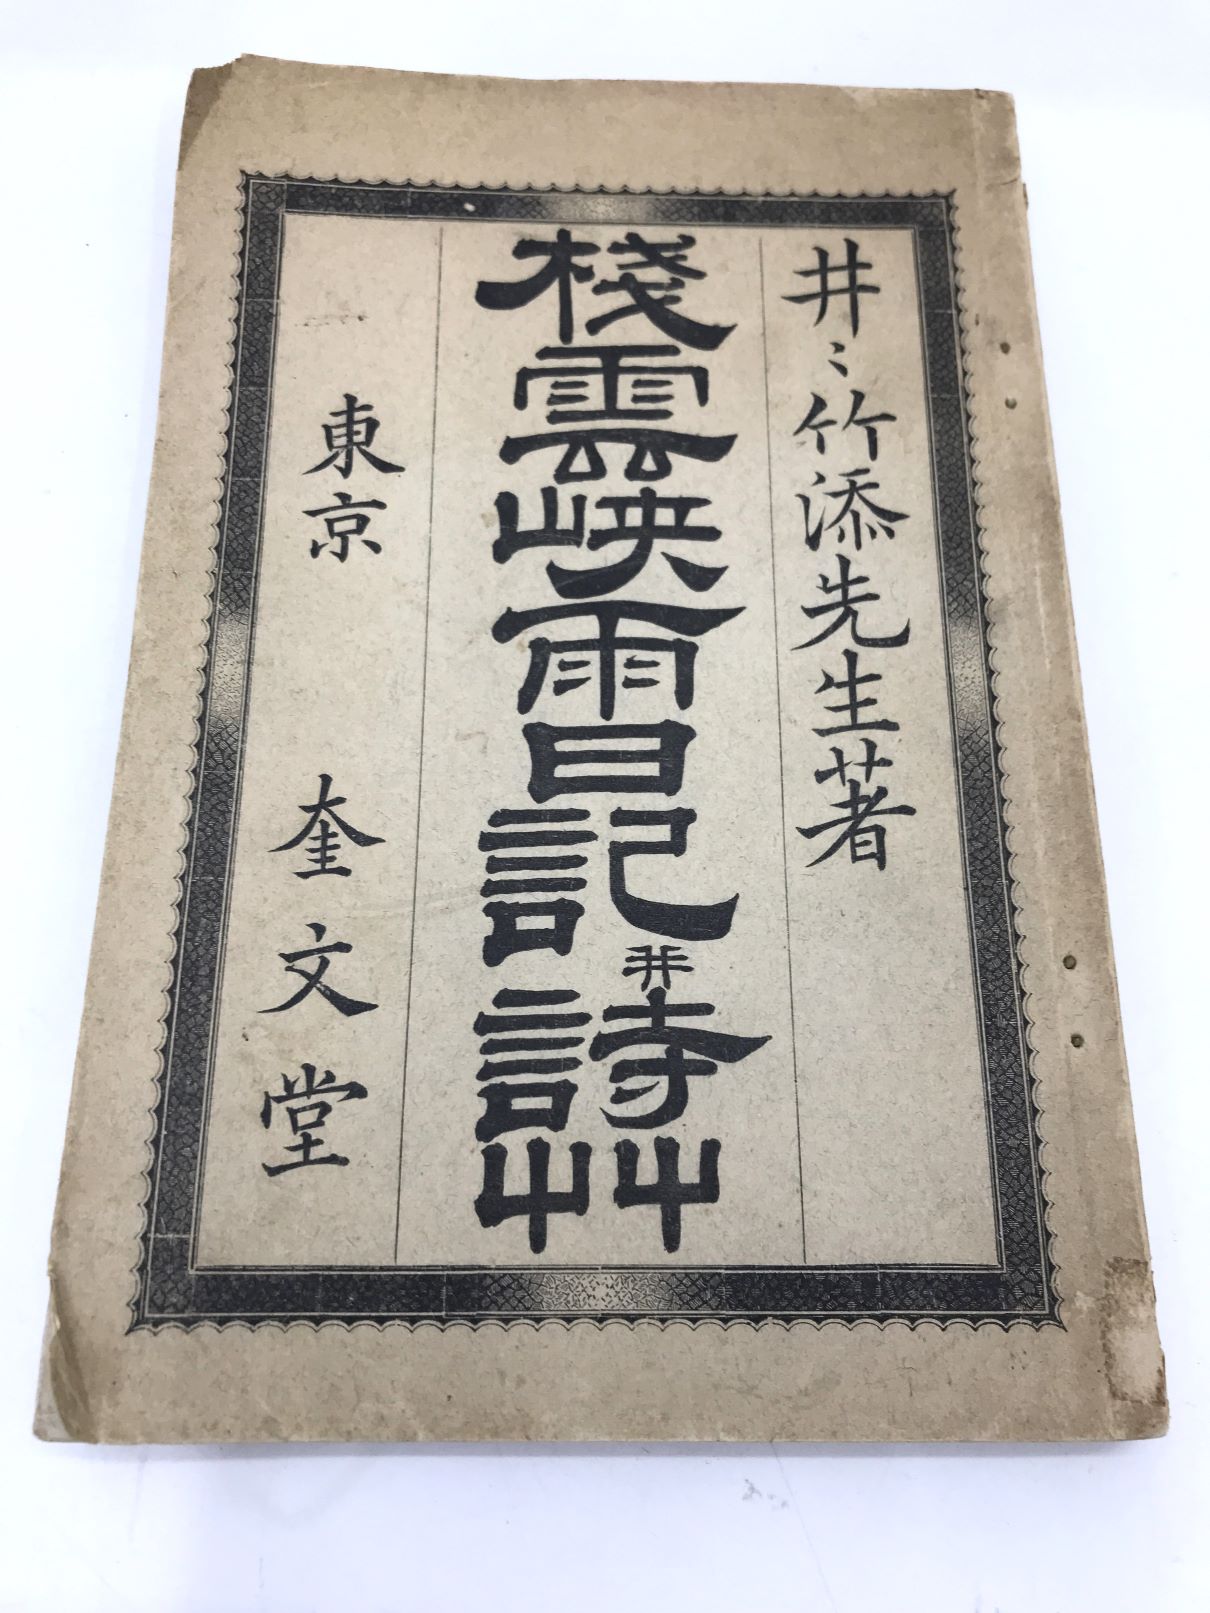 井〻竹添先生著
棧雲峽雨日記并詩艸
東京 奎文堂